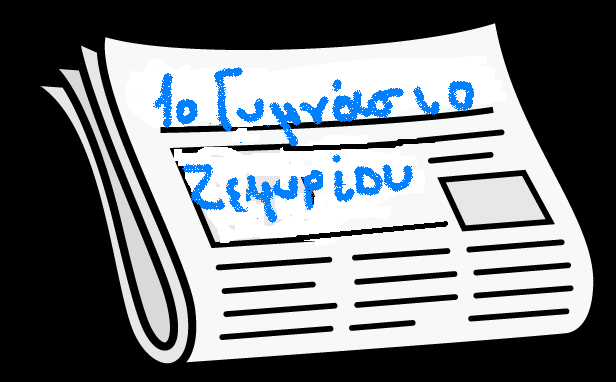 1ο Γυμνάσιο
Ζεφυρίου